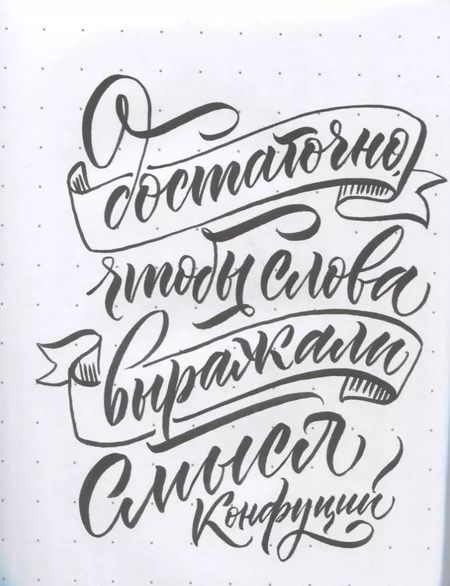 достаточно,
чтобы слова
выражали
смысл
Конфуций